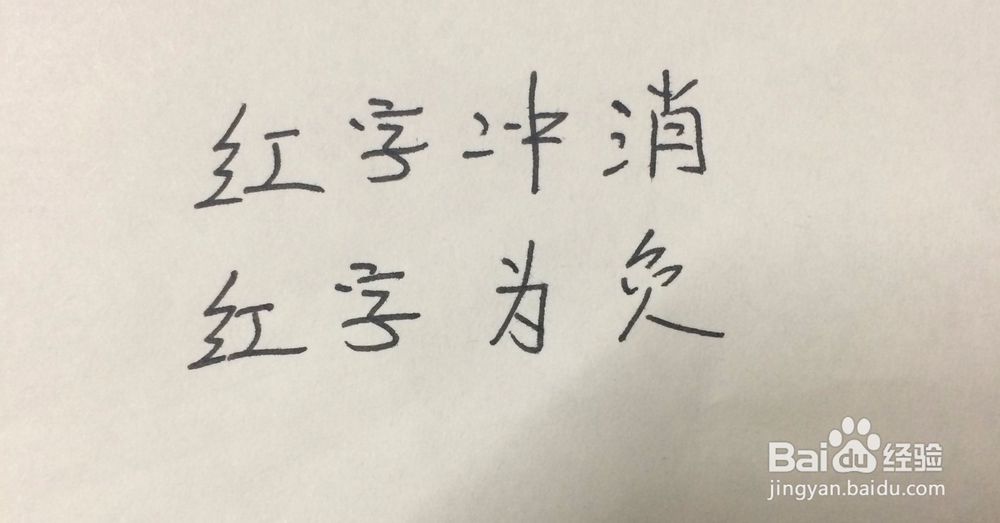 红字冲消
红字为负
Baidu经验
jingyan.baidu.com